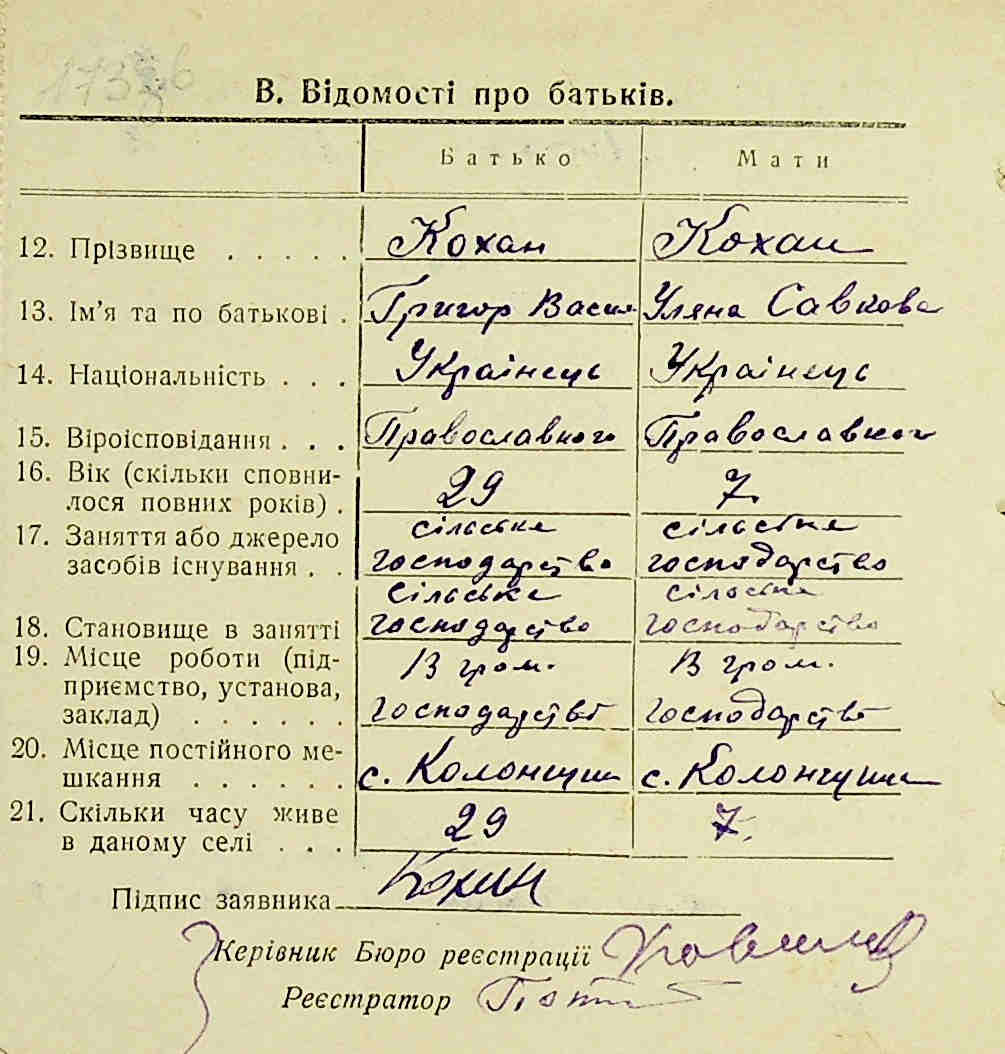 В. Відомості про батьків.
Батько Мати
12. Прізвище . . . . . Кохан Кохан
13. Ім'я та по батькові . Григор Васил Уляна Савкова
14. Національність . . . Українець Українець
15. Віроісповідання . . . Православного Православног
16. Вік (скільки сповни-
лося повних років) . 29 7
сільське сільське
17. Заняття або джерело
засобів існування . . господарство господарство
сільське сільське
18. Становище в занятті господарство господарство
19. Місце роботи (під- В гром. В гром.
приємство, установа,
заклад) . . . . . . господарстві господарстві
20. Місце постійного ме-
шкання . . . . . . с. с.
21. Скільки часу живе 29 7
в даному селі . . .
Підпис заявника Кохан
Керівник Бюро реєстрації
Реєстратор